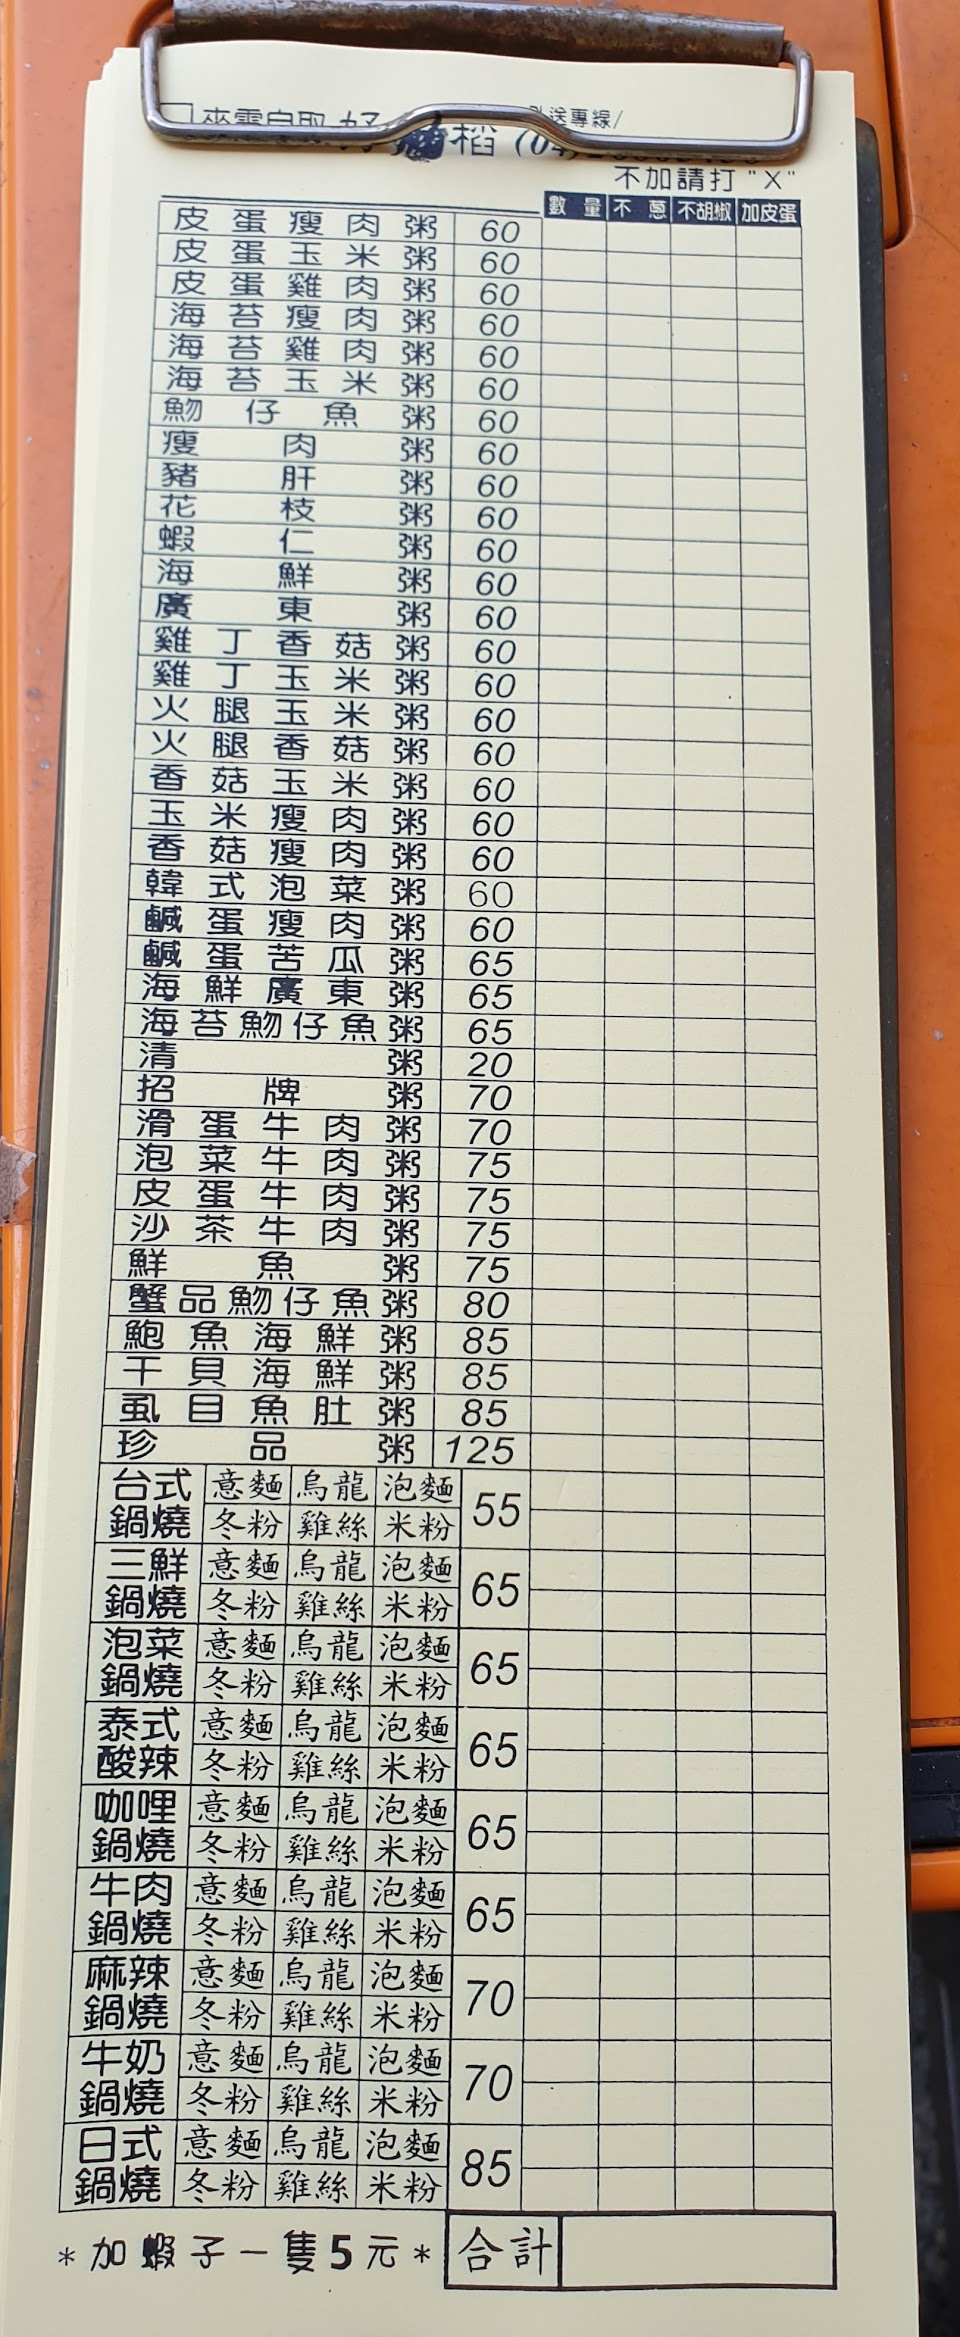 來電自取 好 外送專線/
稻 (04)2
不加請打 "X"
數量 不蔥 不胡椒 加皮蛋
皮蛋瘦肉粥 60
皮蛋玉米粥 60
皮蛋雞肉粥 60
海苔瘦肉粥 60
海苔雞肉粥 60
海苔玉米粥 60
魩仔魚粥 60
瘦肉粥 60
豬肝粥 60
花枝粥 60
蝦仁粥 60
海鮮粥 60
廣東粥 60
雞丁香菇粥 60
雞丁玉米粥 60
火腿玉米粥 60
火腿香菇粥 60
香菇玉米粥 60
玉米瘦肉粥 60
香菇瘦肉粥 60
韓式泡菜粥 60
鹹蛋瘦肉粥 60
鹹蛋苦瓜粥 65
海鮮廣東粥 65
海苔魩仔魚粥 65
清粥 20
招牌粥 70
滑蛋牛肉粥 70
泡菜牛肉粥 75
皮蛋牛肉粥 75
沙茶牛肉粥 75
鮮魚粥 75
蟹品魩仔魚粥 80
鮑魚海鮮粥 85
干貝海鮮粥 85
虱目魚肚粥 85
珍品粥 125
台式 意麵 烏龍 泡麵 55
鍋燒 冬粉 雞絲 米粉
三鮮 意麵 烏龍 泡麵 65
鍋燒 冬粉 雞絲 米粉
泡菜 意麵 烏龍 泡麵 65
鍋燒 冬粉 雞絲 米粉
泰式 意麵 烏龍 泡麵 65
酸辣 冬粉 雞絲 米粉
咖哩 意麵 烏龍 泡麵 65
鍋燒 冬粉 雞絲 米粉
牛肉 意麵 烏龍 泡麵 65
鍋燒 冬粉 雞絲 米粉
麻辣 意麵 烏龍 泡麵 70
鍋燒 冬粉 雞絲 米粉
牛奶 意麵 烏龍 泡麵 70
鍋燒 冬粉 雞絲 米粉
日式 意麵 烏龍 泡麵 85
鍋燒 冬粉 雞絲 米粉
*加蝦子一隻5元* 合計